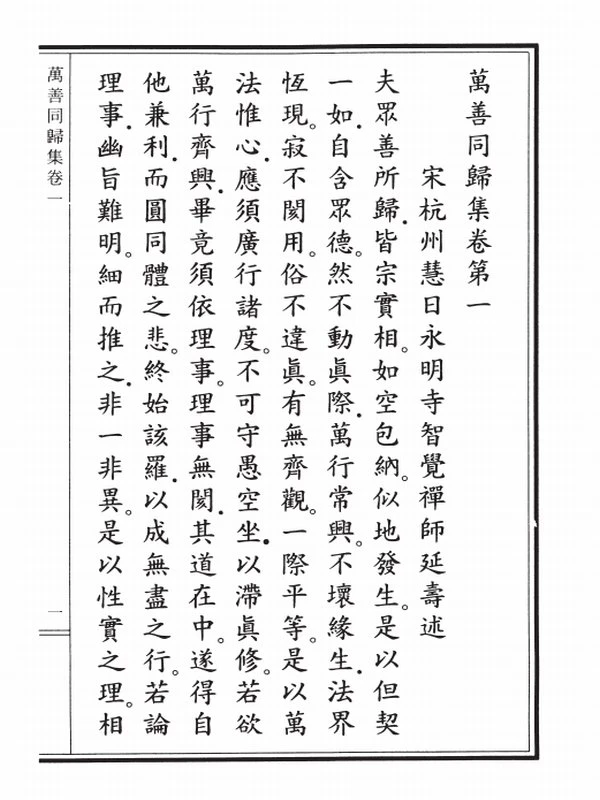 萬善同歸集卷第一
宋杭州慧日永明寺智覺禪師延壽述
夫眾善所歸.皆宗實相。如空包納。似地發生。是以但契
一如.自含眾德。然不動眞際.萬行常興。不壞緣生.法界
恆現。寂不閡用。俗不違眞。有無齊觀。一際平等。是以萬
法惟心.應須廣行諸度。不可守愚空坐.以滯眞修。若欲
萬行齊興.畢竟須依理事。理事無閡.其道在中。遂得自
他兼利.而圓同體之悲。終始該羅.以成無盡之行。若論
理事.幽旨難明。細而推之.非一非異。是以性實之理。相
萬善同歸集卷一
一